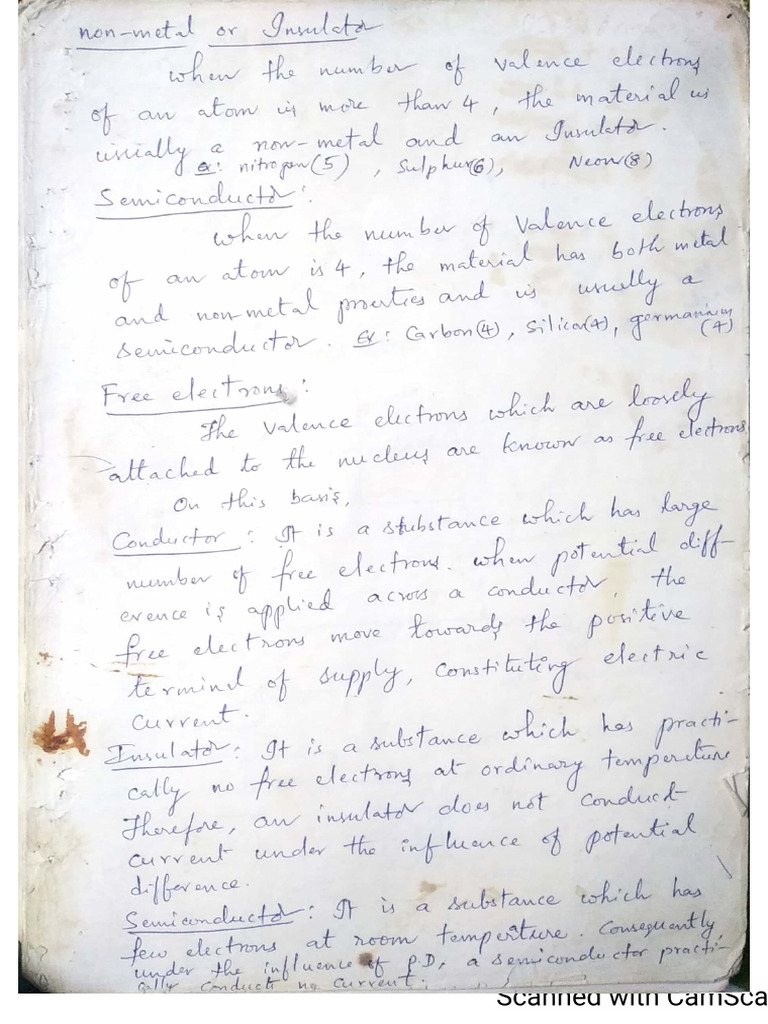 non-metal or Insulator
when the number of valence electrons
of an atom is more than 4, the material is
usually a non-metal and an Insulator.
Ex: nitrogen(5), Sulphur(6), Neon(8)
Semiconductor:
when the number of Valence electrons
of an atom is 4, the material has both metal
and non-metal proerties and is usually a
semiconductor. Ex: Carbon(4), Silicon(4), germanium
(4)
Free electrons:
The valence electrons which are loosely
attached to the nucleus are known as free electrons
On this basis,
Conductor: It is a substance which has large
number of free electrons. when potential diff-
erence is applied across a conductor, the
free electrons move towards the positive
terminal of supply, constituting electric
current.
Insulator: It is a substance which has practi-
cally no free electrons at ordinary temperature
Therefore, an insulator does not conduct
current under the influence of potential
difference.
Semiconductor: It is a substance which has
few electrons at room temperature. Consequently,
under the influence of P.D, a semiconductor practi-
cally conducts no current.
Scanned with CamSca